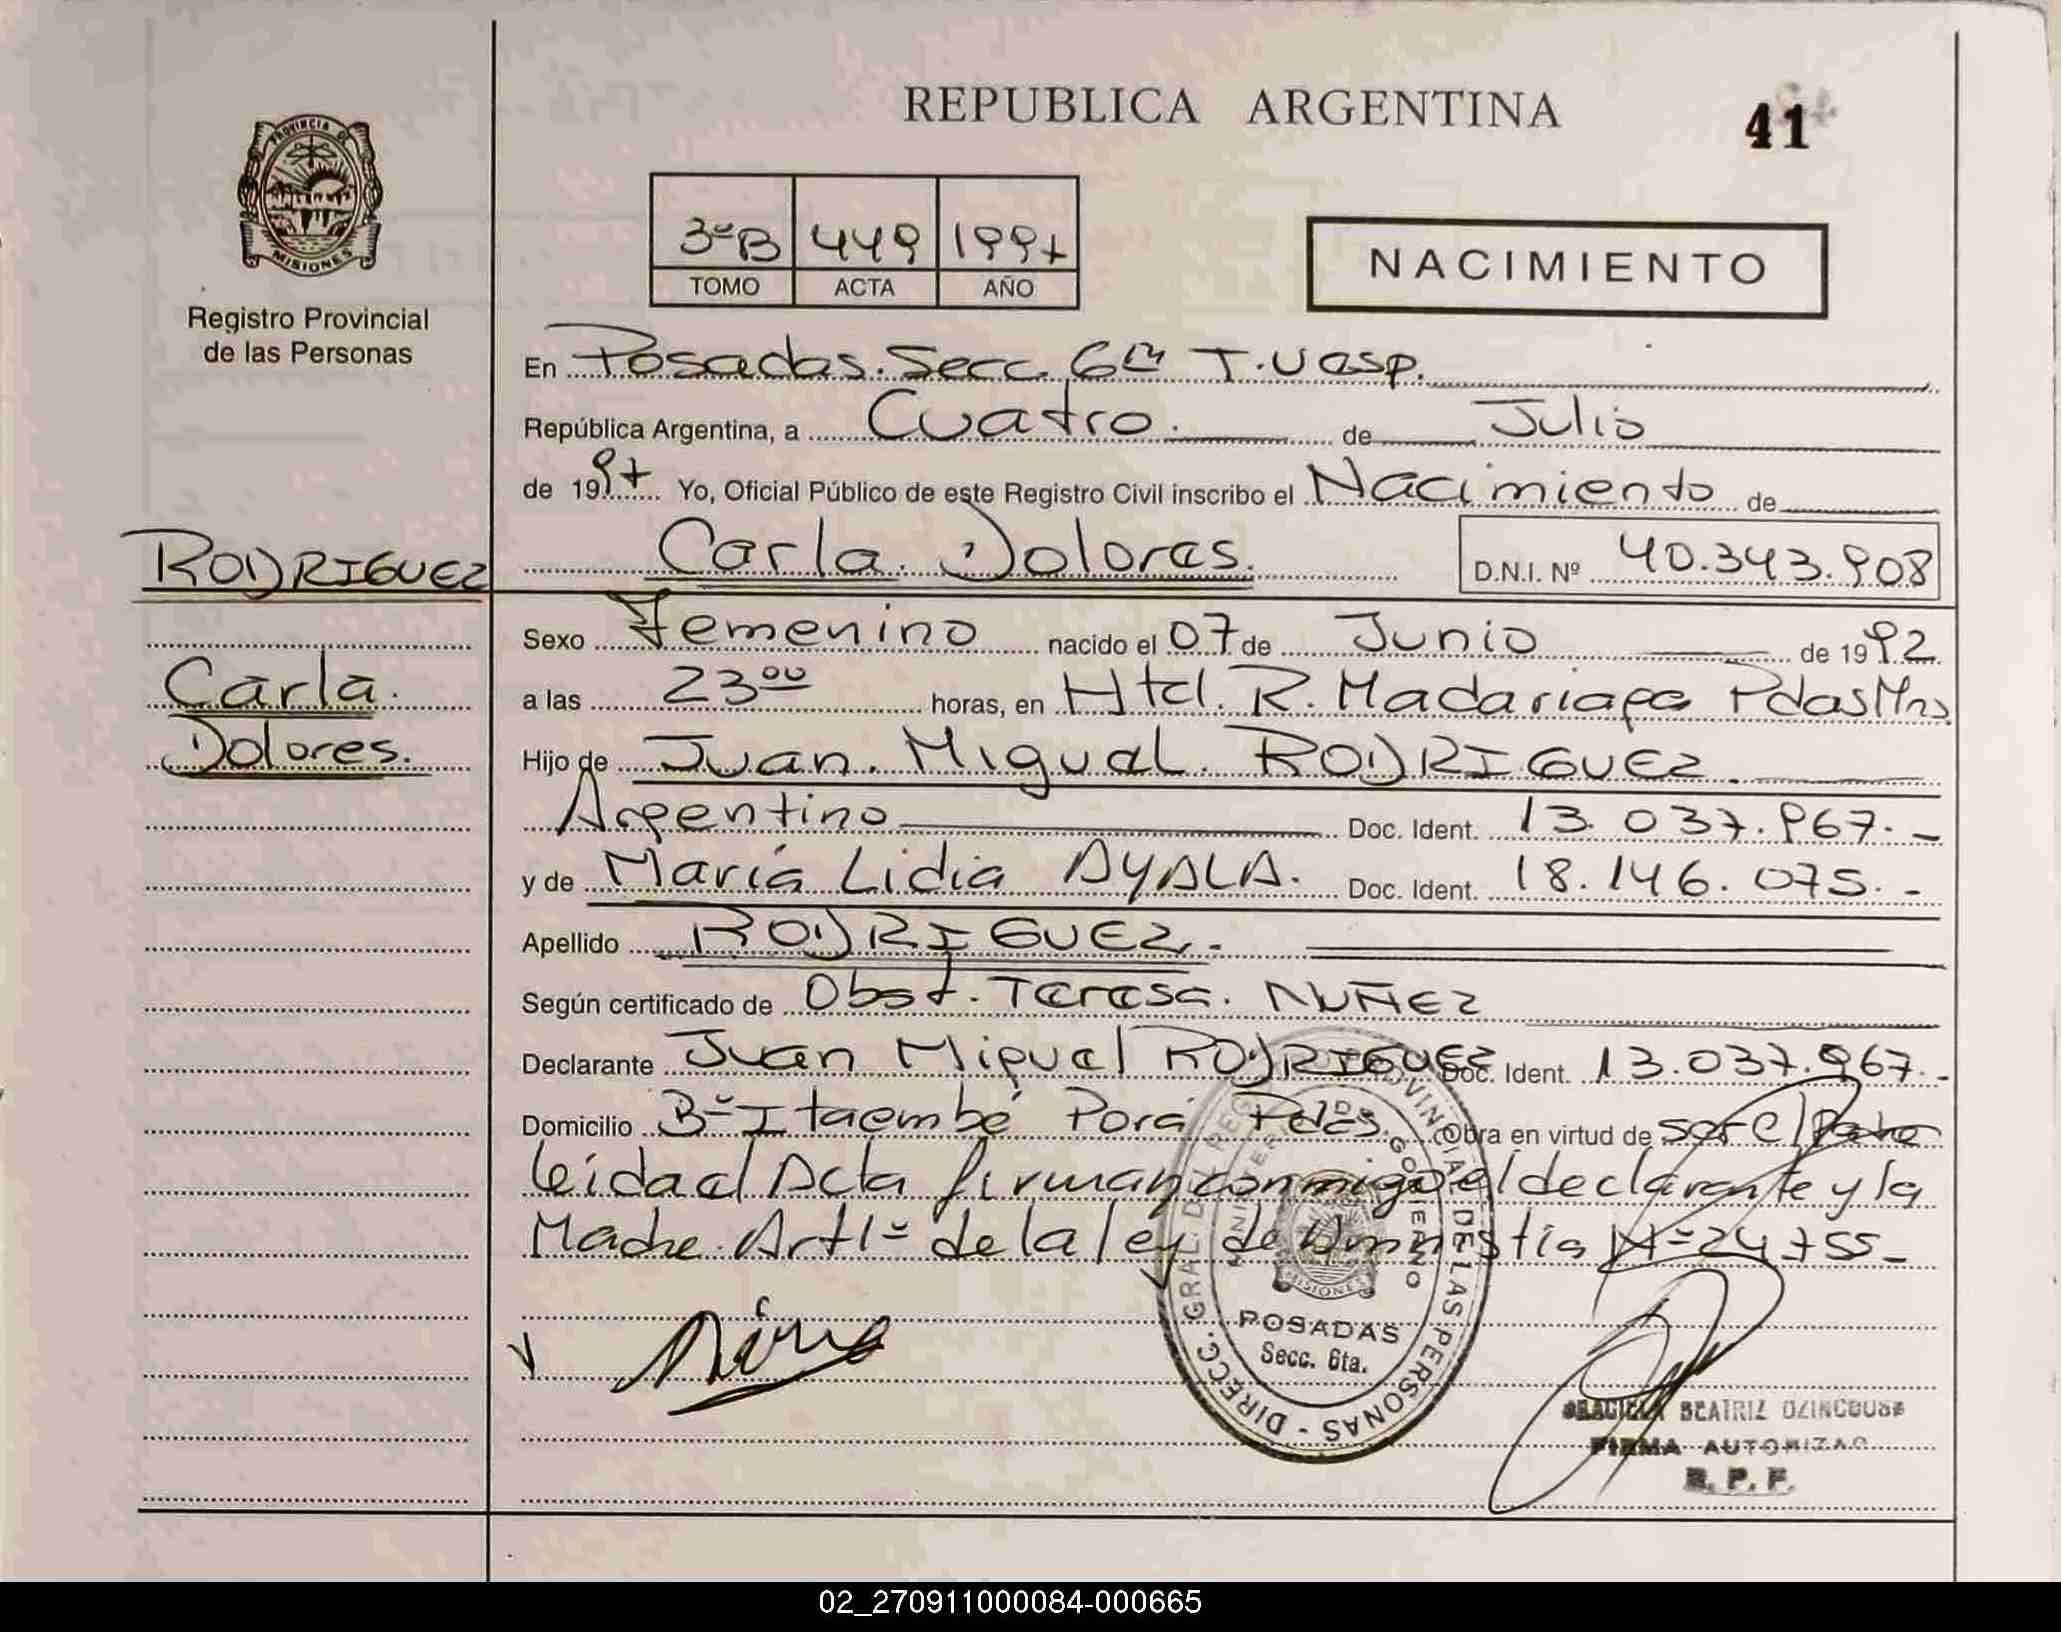 REPUBLICA ARGENTINA
41
PROVINCIA DE
MISIONES
Registro Provincial
de las Personas
3º B 449 1997
TOMO ACTA AÑO
NACIMIENTO
En Posadas. Secc. 6ta T.Vesp.
República Argentina, a Cuatro. de Julio
de 1997 Yo, Oficial Público de este Registro Civil inscribo el Nacimiento de
Carla Dolores. D.N.I. Nº 40.343.908
RODRIGUEZ
Carla.
Dolores.
Sexo Femenino nacido el 07 de Junio de 1992
a las 23 00 horas, en Htal. R. Madariaga Pdas Mns
Hijo de Juan. Miguel. RODRIGUEZ.
Argentino Doc. Ident. 13.037.967.-
y de María Lidia AYALA. Doc. Ident. 18.146.075.-
Apellido RODRIGUEZ.-
Según certificado de Obst. Teresa. NUÑEZ
Declarante Juan Miguel RODRIGUEZ Doc. Ident. 13.037.967.-
Domicilio Bº Itaembé Porá Pdas. Obra en virtud de ser el Padre
leida el Acta firman conmigo el declarante y la
Madre. Art 1º de la ley de Amnistia Nº 24755-
DIRECC. GRAL. DEL REG. PROVINCIAL DE LAS PERSONAS
GOBIERNO
MISIONES
POSADAS
Secc. 6ta.
GRACIELA BEATRIZ
FIRMA AUTORIZAD
R. P. P.
02_270911000084-000665